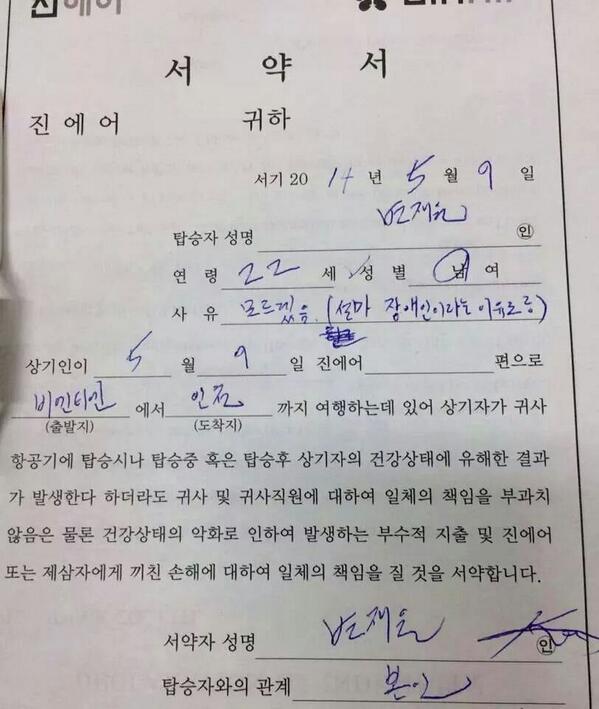 진에어
서 약 서
진에어 귀하
서기 2014년 5월 9일
탑승자 성명 변재원 ㊞
연 령 22 세 성 별 남 여
사 유 모르겠음. (설마 장애인이라는 이유로?)
상기인이 5 월 9 일 진에어 편으로
비엔티안 에서 인천 까지 여행하는데 있어 상기자가 귀사
(출발지) (도착지)
항공기에 탑승시나 탑승중 혹은 탑승후 상기자의 건강상태에 유해한 결과
가 발생한다 하더라도 귀사 및 귀사직원에 대하여 일체의 책임을 부과치
않음은 물론 건강상태의 악화로 인하여 발생하는 부수적 지출 및 진에어
또는 제삼자에게 끼친 손해에 대하여 일체의 책임을 질 것을 서약합니다.
서약자 성명 변재원 ㊞
탑승자와의 관계 본인